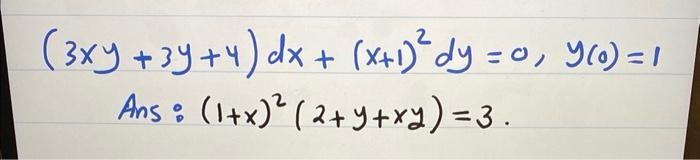 (3xy + 3y + 4) dx + (x+1)² dy = 0, y(0) = 1
Ans : (1+x)² (2+y+xy) = 3.